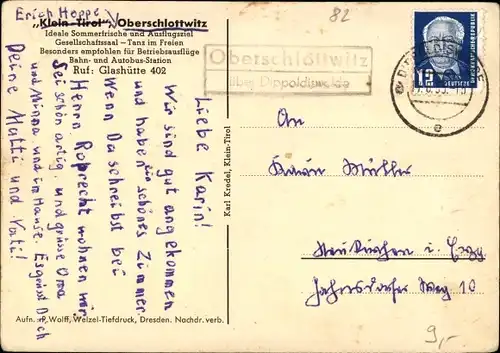 Erich Hoppe
82
„Klein-Tirol", Oberschlottwitz
Ideale Sommerfrische und Ausflugsziel
Gesellschaftssaal – Tanz im Freien
Besonders empfohlen für Betriebsausflüge
Bahn- und Autobus-Station
Ruf: Glashütte 402
Oberschlottwitz
über Dippoldiswalde
12
e
Liebe Karin!
Wir sind gut angekommen
und haben ein schönes Zimmer.
Wenn Du schreibst bei
Herrn Ruprecht wohnen wir.
Sei schön artig und grüsse Oma
und Minna und im Hause. Es grüsst Dich
Deine Mutti und Vati!
Karl Kredel, Klein-Tirol
An
Karin Müller
Neukirchen i. Erzg.
Jahnsdorfer Weg 10
9,-
Aufn. P. Wolff, Welzel-Tiefdruck, Dresden. Nachdr. verb.